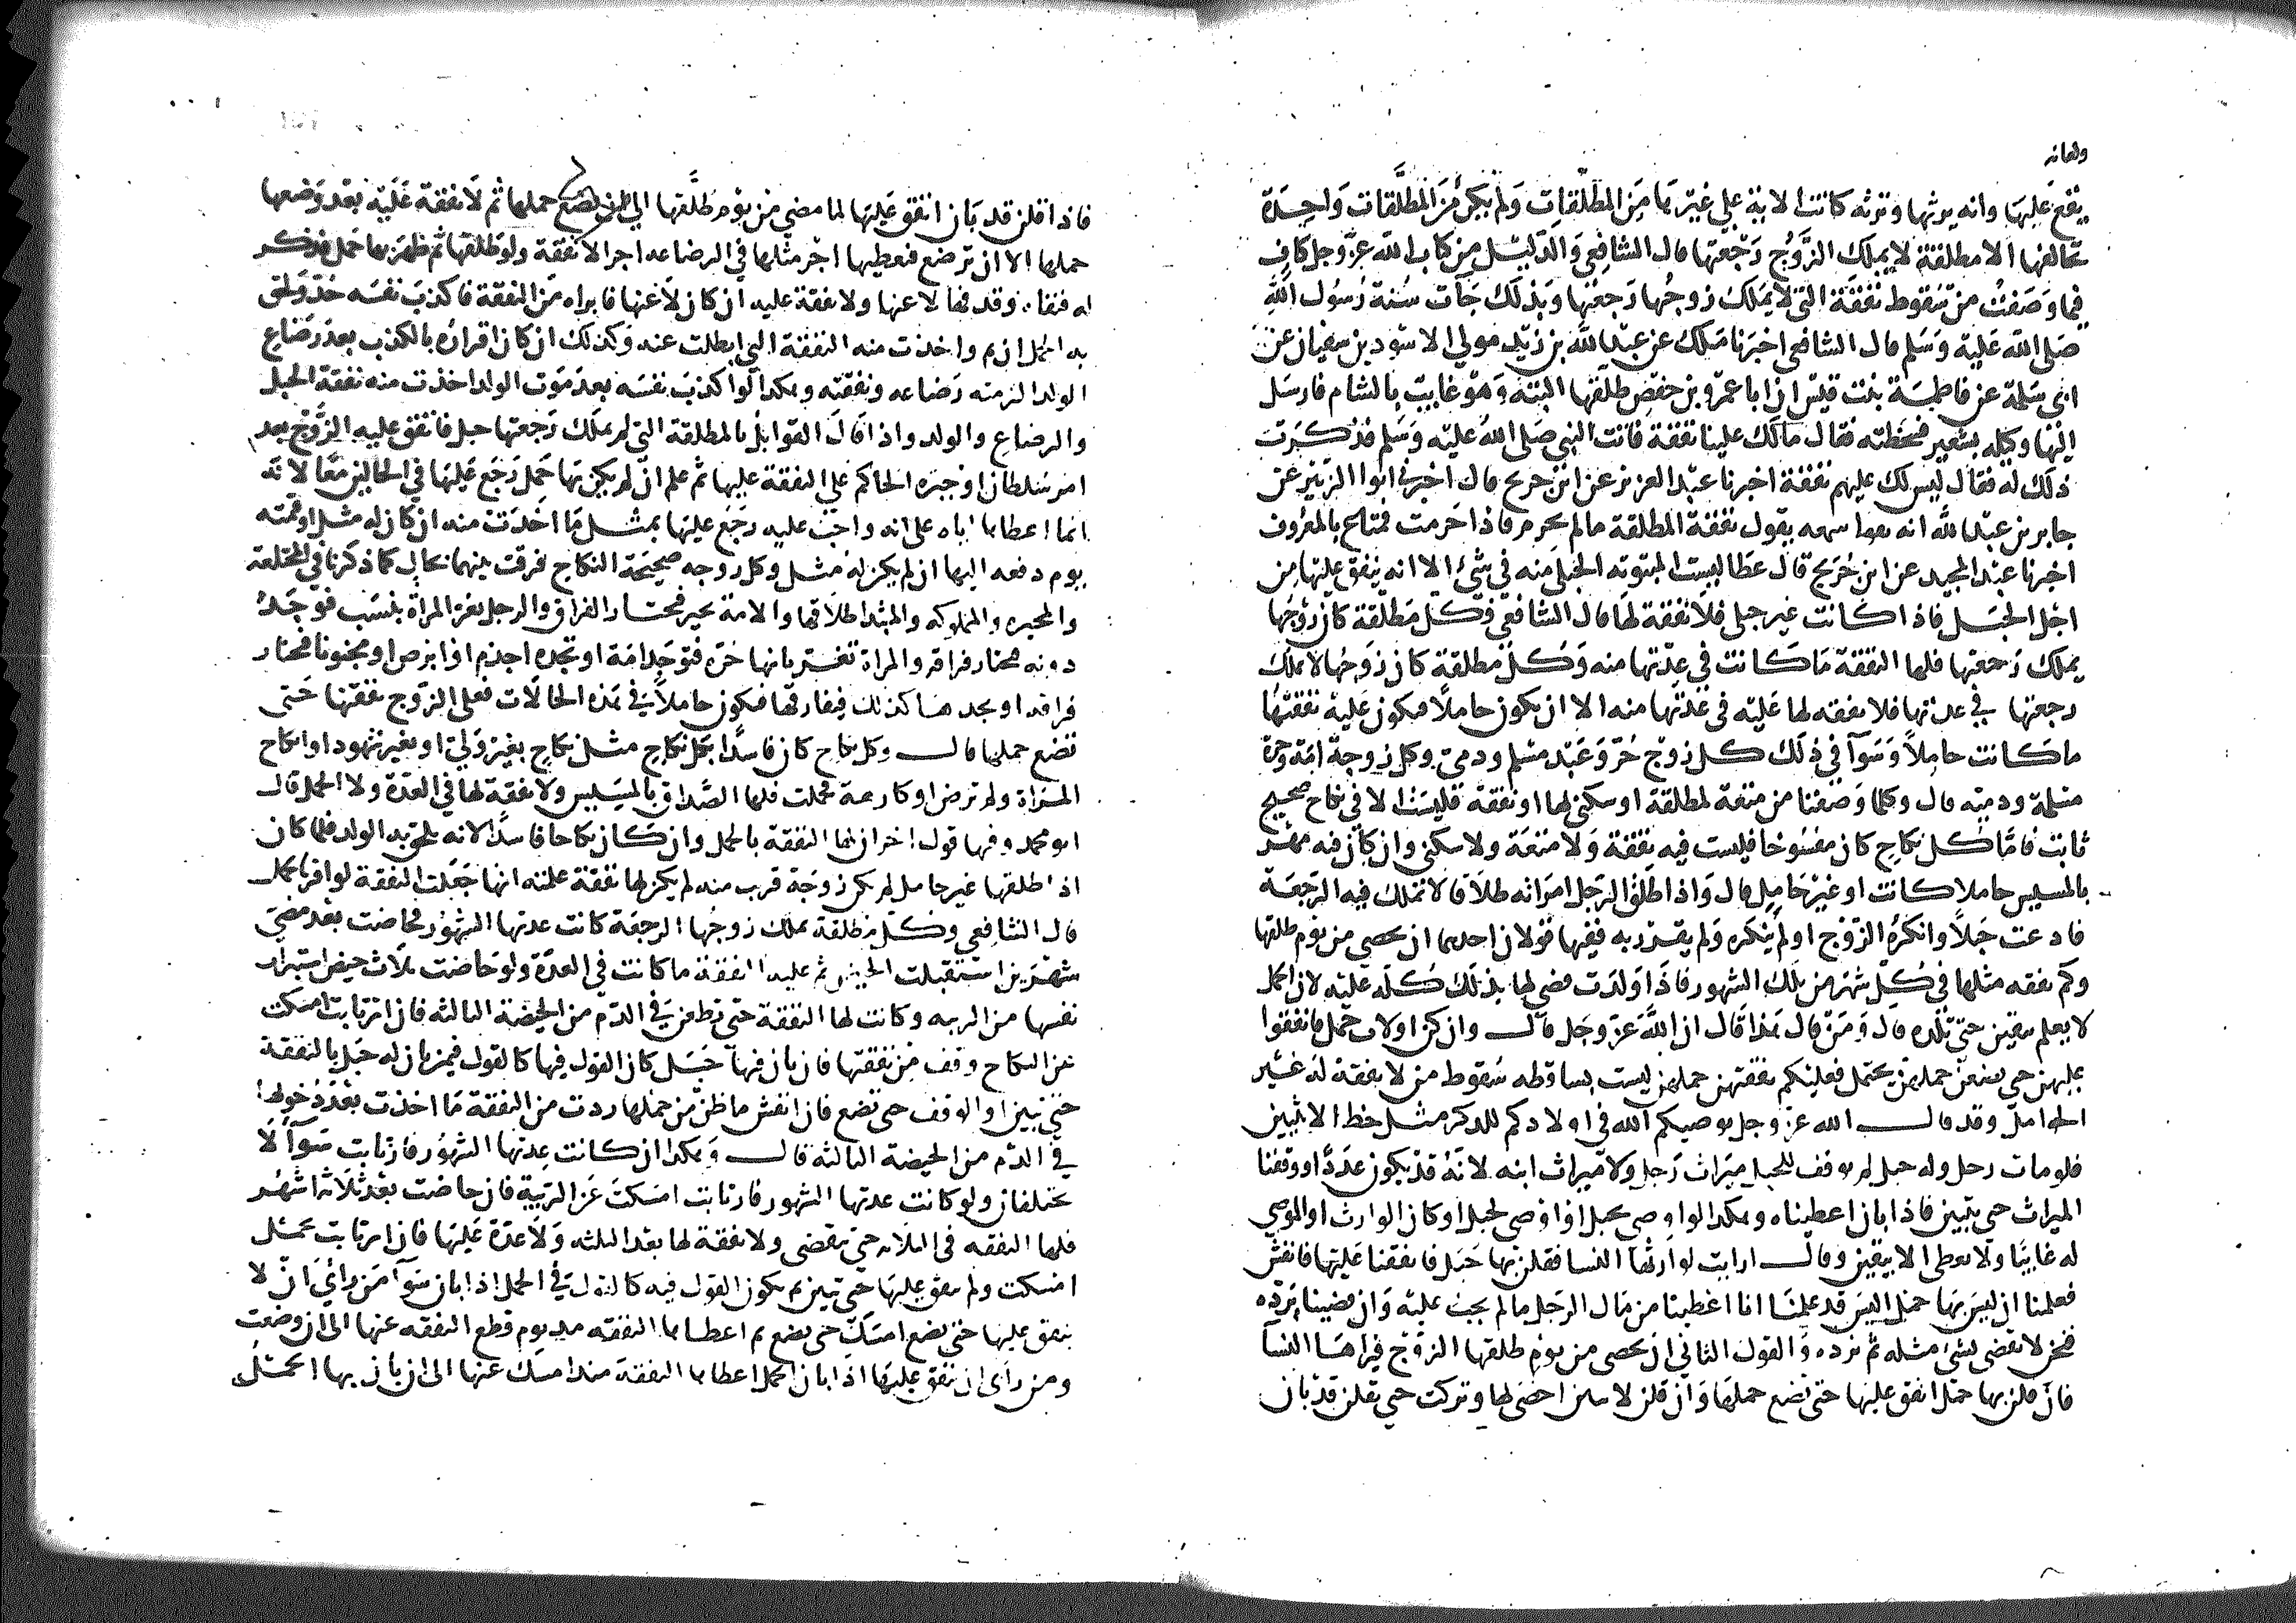 ولعانه
يقع عليها وانه يرثها وترثه كانت الاية علي غيرها من المطلقات ولم يكن من المطلقات واحدة
تخالفها الا مطلقة لا يملك الزوج رجعتها قال الشافعي والدليل من كتاب الله عز وجل كاف
فيما وصفت من سقوط نفقة التي لا يملك زوجها رجعتها وبذلك جات سنة رسول الله
صلى الله عليه وسلم قال الشافعي اخبرنا ملك عن عبد الله بن زيد مولي الاسود بن سفيان عن
ابي سلمة عن فاطمة بنت قيس ان ابا عمرو بن حفص طلقها البتة وهو غايب بالشام فارسل
اليها وكيله بشعير فسخطته فقال مالك علينا نفقة فاتت النبي صلى الله عليه وسلم فذكرت
ذلك له فقال ليس لك عليهم نفقة اخبرنا عبد العزيز عن ابن جريح قال اخبرني ابوا الزبير عن
جابر بن عبد الله انه سمعه يقول نفقة المطلقة مالم تحرم فاذا حرمت فمتاع بالمعروف
اخبرنا عبد المجيد عن ابن جريح قال عطا ليست المبتوته الحبلى منه في شيء الا انه ينفق عليها من
اجل الحبل فاذا كانت غير حبلى فلا نفقة لها قال الشافعي فكل مطلقة كان زوجها
يملك رجعتها فلها النفقة ما كانت في عدتها منه وكل مطلقة كان زوجها لا يملك
رجعتها في عدتها فلا نفقه لها عليه في عدتها منه الا ان يكون حاملا فيكون عليه نفقتها
ما كانت حاملا وسوآ في ذلك كل زوج حر وعبد مسلم وذمي وكل زوجة امة وحرة
مسلمة وذميه قال وكلما وصفنا من متعة لمطلقة او سكنى لها او نفقة فليست الا في نكاح صحيح
ثابت فاما كل نكاح كان مفسوخا فليست فيه نفقة ولا متعة ولا سكنى وان كان فيه مهر
بالمسيس حاملا كانت او غير حامل قال واذا طلق الرجل امراته طلاقا لا تملك فيه الرجعة
فادعت حبلا وانكره الزوج او لم ينكره ولم يقر به ففيها قولان احدهما ان يحصي من يوم طلقها
وكم نفقه مثلها في كل شهر من تلك الشهور فاذا ولدت قضي لها بذلك كله عليه لان الحمل
لا يعلم بيقين حتى تلده قال ومن قال هذا قال ان الله عز وجل قال وان كن اولات حمل فانفقوا
عليهن حتي يضعن حملهن يحتمل فعليكم نفقتهن حملهن ليست بساقطه سقوط من لا نفقة له غير
الحوامل وقد قال الله عز وجل يوصيكم الله في اولادكم للذكر مثل حظ الانثيين
فلو مات رجل وله حبل لم يوقف للحبل ميراث رجل ولا ميراث ابنه لانه قد يكون عددا او وقفنا
الميراث حتي يتبين فاذا بان اعطيناه وهكذا لو اوصي بحبل او اوصي لحبل او كان الوارث او الموصي
له غايبا ولا يعطى الا بيقين وقال ارايت لو اريتها النسا فقلن بها حبل فانفقنا عليها فانفش
فعلمنا ان ليس بها حمل اليس قد علمنا انا اعطينا من مال الرجل مالم يجب عليه وان قضينا برده
فنحن لا نقضي بشيء مثله ثم نرده والقول الثاني ان يحصى من يوم طلقها الزوج فيراها النسآ
فان قلن بها حمل انفق عليها حتى تضع حملها وان قلن لا يبين احصى لها وتركت حتي يقلن قد بان
فاذا قلن قد بان انفق عليها لما مضي من يوم طلقها الي ان تضع حملها ثم لا نفقة عليه بعد وضعها
حملها الا ان ترضع فنعطيها اجر مثلها في الرضاعه اجرا لا نفقة ولو طلقها ثم ظهر بها حمل فذكر
له فنفاه وقدفها لاعنها ولا نفقة عليه ان كان لاعنها فابراه من النفقة فاكذب نفسه حد ولحق
به الحمل ان تم واخذت منه النفقة التي ابطلت عنه وكذلك ان كان اقراره بالكذب بعد رضاع
الولد الزمته رضاعه ونفقته وهكذا لو اكذب نفسه بعد موت الولد اخذت منه نفقة الحبل
والرضاع والولد واذا قال القوابل بالمطلقة التي لم يملك رجعتها حبل فانفق عليه الزوج بعد
امر سلطان او جبره الحاكم علي النفقة عليها ثم علم ان لم يكن بها حمل رجع عليها في الحالين معا لانه
انما اعطاها اياه على انه واجب عليه رجع عليها بمثل ما اخذت منه ان كان له مثل او قيمته
يوم دفعه اليها ان لم يكن له مثل وكل زوجه صحيحة النكاح فرقت بينهما بحال كما ذكرنا في المختلعة
والمخيره والمملوكه والمبتدا طلاقها والامة تخير فتختار الفراق والرجل يغر المراة بنسب فوجد
دونه فتختار فراقه والمراة تغتر بانها حره فتوجد امة او تجده اجذم او ابرص او مجنونا فتختار
فراقه او يجدها كذلك فيفارقها فتكون حاملا في هذه الحالات فعلي الزوج نفقتها حتى
تضع حملها قال وكل نكاح كان فاسدا بكل نكاح مثل نكاح بغير ولي او بغير شهود او انكاح
المراة ولم ترض او كارهة فحملت فلها الصداق بالمسيس ولا نفقة لها في العدة ولا الحمل قال
ابو محمد وفيها قول اخر ان لها النفقة بالحمل وان كان نكاحا فاسدا لانه يلحق به الولد فلما كان
اذا طلقها غير حامل لم تكن زوجة قرب منه لم يكن لها نفقة علمنه انها جعلت النفقة لو اقر بالحمل
قال الشافعي وكل مطلقة يملك زوجها الرجعة كانت عدتها الشهور فحاضت بعد مضي
شهرين استقبلت الحيض ثم عليه النفقة ما كانت في العدة ولو حاضت ثلاث حيض استبرات
نفسها من الريبه وكانت لها النفقة حتى تطعن في الدم من الحيضة الثالثه فان ارتابت امسكت
عن النكاح ووقف من نفقتها فان بان فيها حبل كان القول فيها كالقول فيمن بان له حبل بالنفقة
حتى تبين او الوقف حتى تضع فان انفش ما ظن من حملها ردت من النفقة ما اخذت بعد دخولها
في الدم من الحيضة الثالثه قال وهكذا ان كانت عدتها الشهور فارتابت سوآ لا
يختلفان ولو كانت عدتها الشهور فارتابت امسكت عن الريبة فان حاضت بعد ثلاثة اشهر
فلها النفقه في الثلاثه حتي تنقضي ولا نفقة لها بعد الثلثه ولا عدة عليها فان ارتابت بحمل
امسكت ولم ينفق عليها حتي يتبين ثم يكون القول فيه كالقول في الحمل اذا بان سوآ من راي ان لا
ينفق عليها حتى تضع امسك حتى تضع ثم اعطاها النفقه من يوم قطع النفقه عنها الى ان وضعت
ومن راى ان ينفق عليها اذا بان الحمل اعطاها النفقة منذ امسك عنها الى ان بان بها الحمل